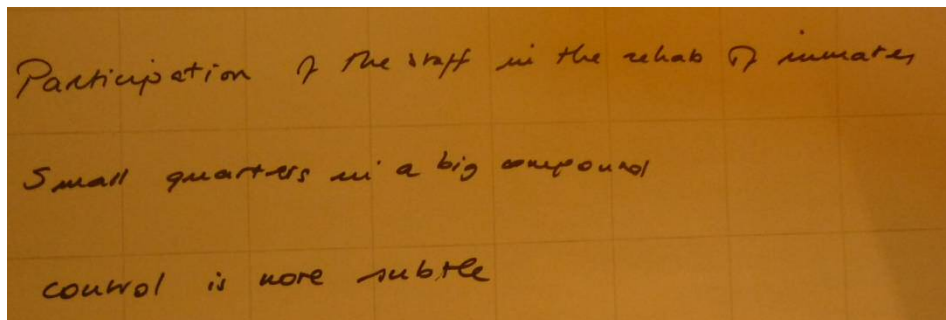 Participation of the staff in the rehab of inmates
Small quarters in a big compound
control is more subtle